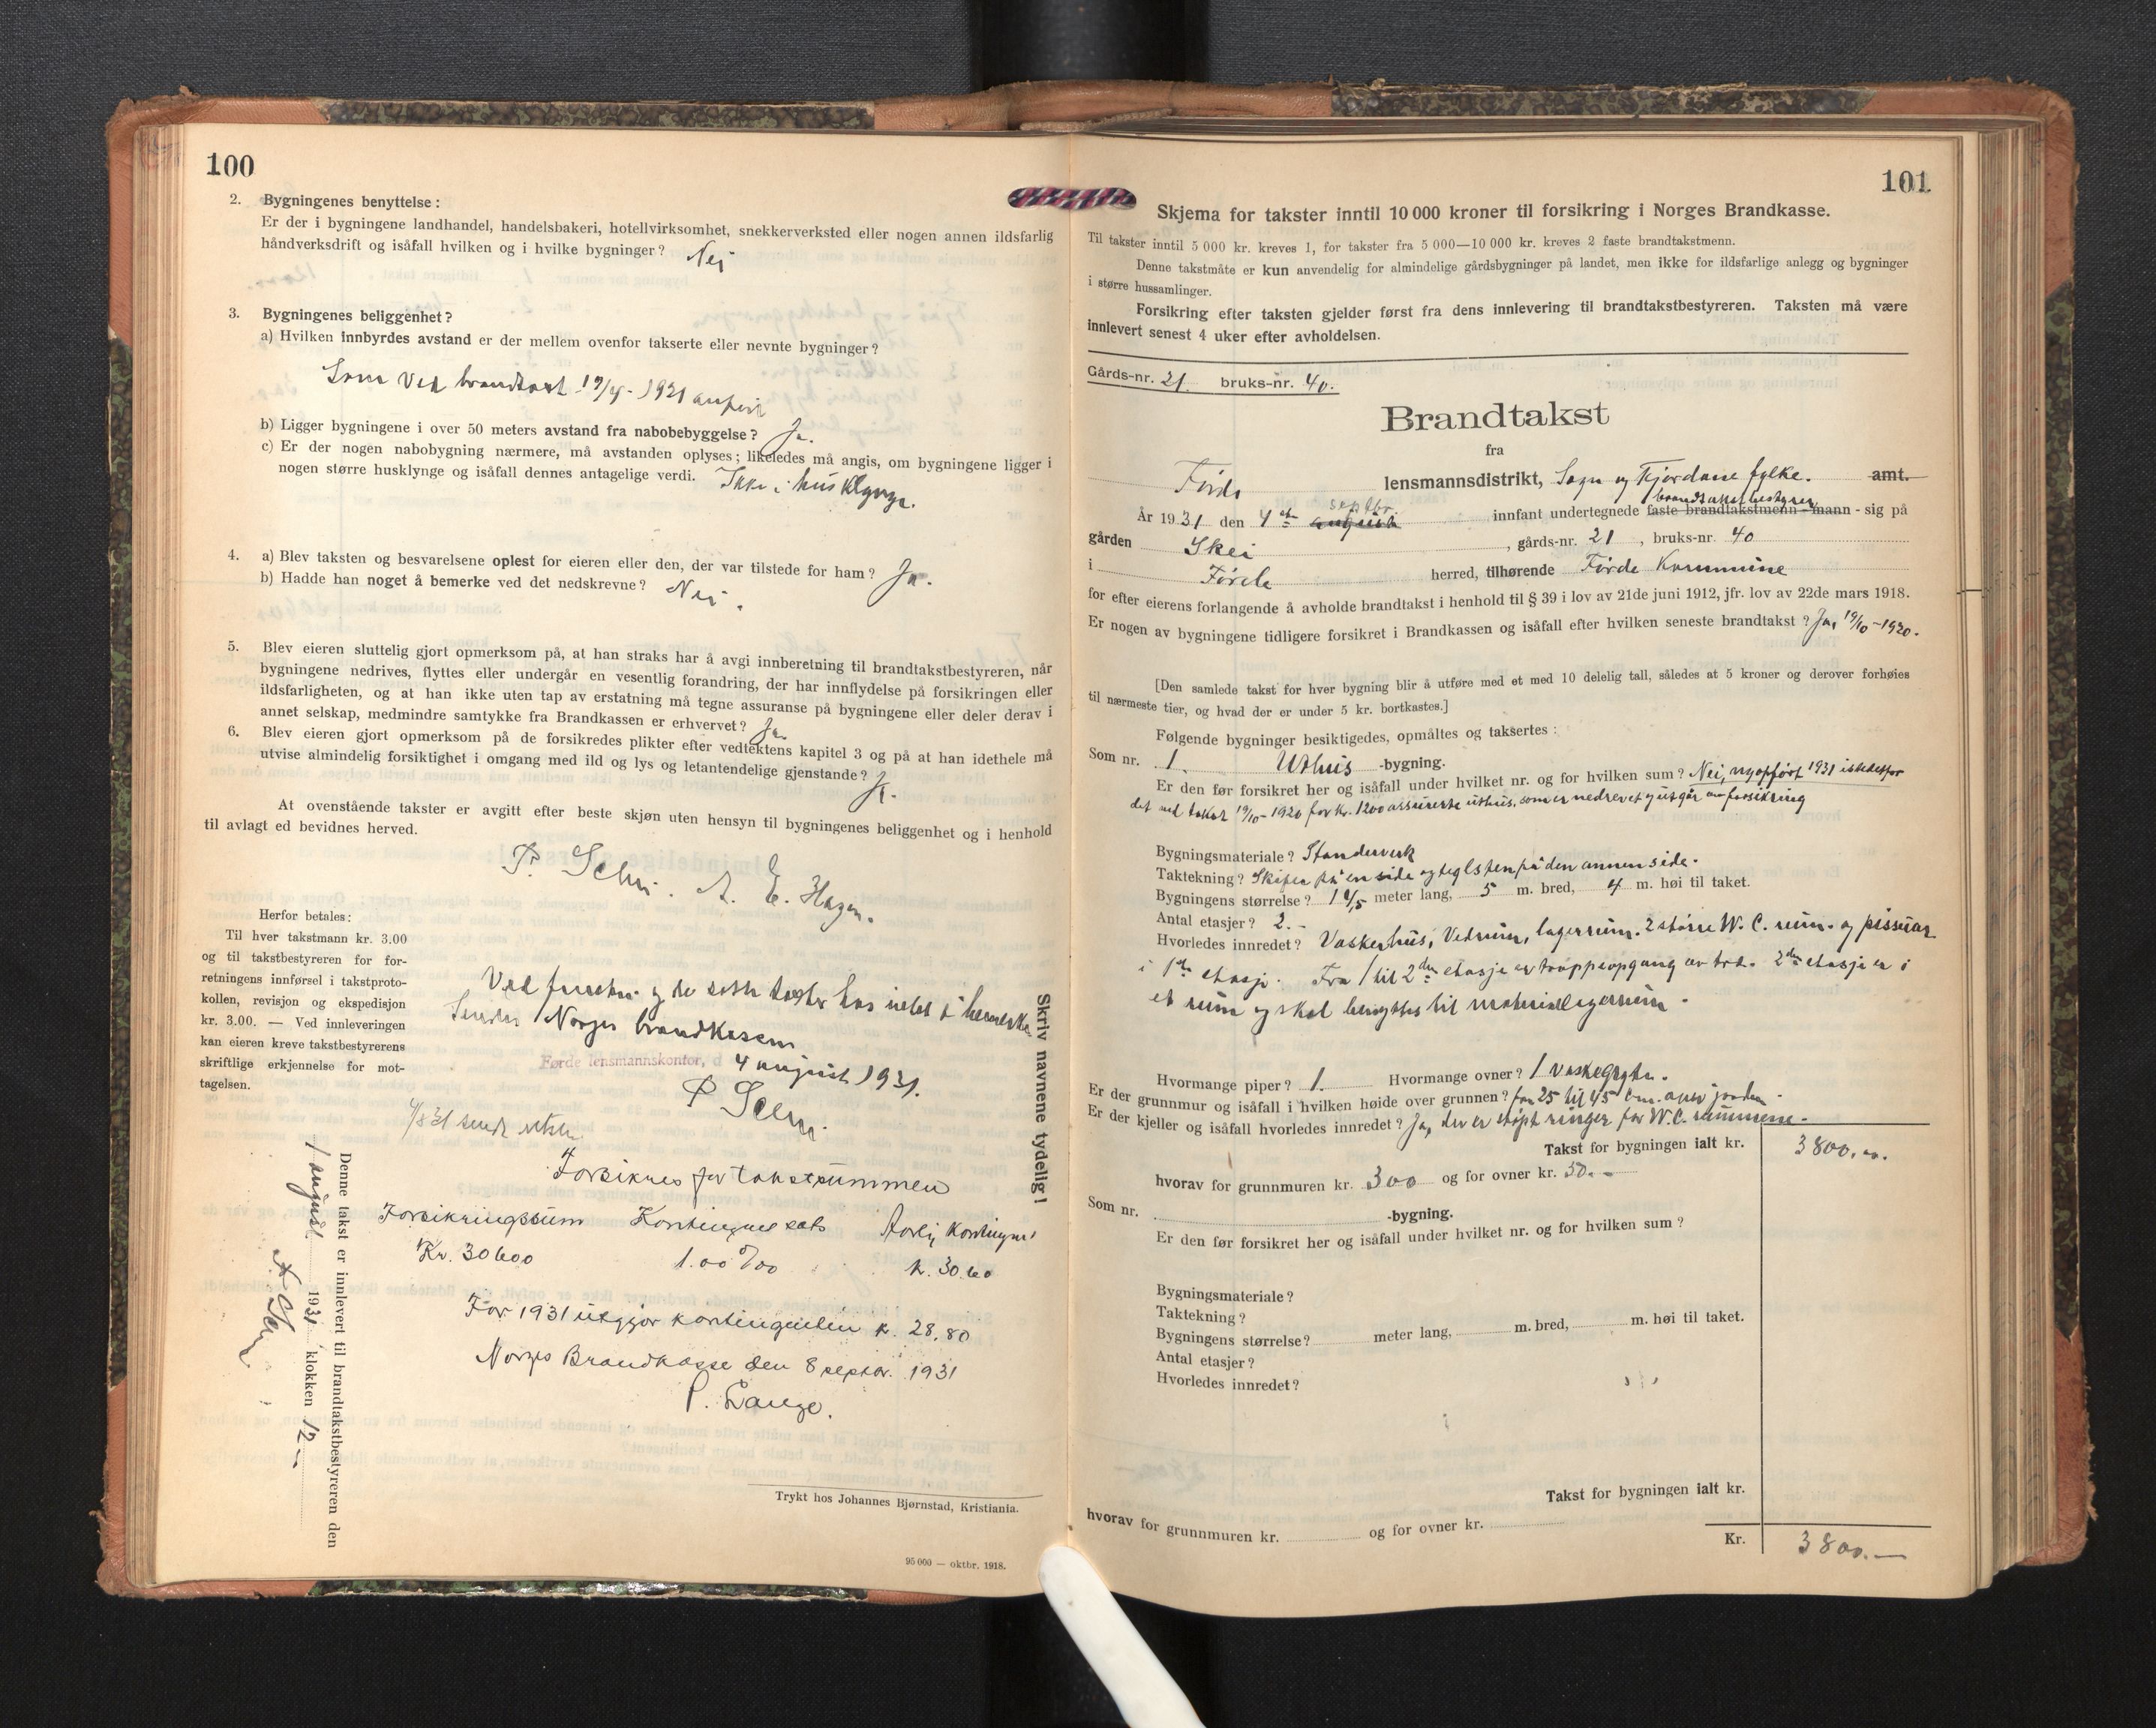 100
2. Bygningenes benyttelse:
Er der i bygningene landhandel, handelsbakeri, hotellvirksomhet, snekkerverksted eller nogen annen ildsfarlig
håndverksdrift og isåfall hvilken og i hvilke bygninger? Nei
3. Bygningenes beliggenhet?
a) Hvilken innbyrdes avstand er der mellem ovenfor takserte eller nevnte bygninger?
Som ved brandtakst 1921
b) Ligger bygningene i over 50 meters avstand fra nabobebyggelse? Ja.
c) Er der nogen nabobygning nærmere, må avstanden oplyses; likeledes må angis, om bygningene ligger i
nogen større husklynge og isåfall dennes antagelige verdi. Ikke i husklynge.
4. a) Blev taksten og besvarelsene oplest for eieren eller den, der var tilstede for ham? Ja.
b) Hadde han noget å bemerke ved det nedskrevne? Nei.
5. Blev eieren sluttelig gjort opmerksom på, at han straks har å avgi innberetning til brandtakstbestyreren, når
bygningene nedrives, flyttes eller undergår en vesentlig forandring, der har innflydelse på forsikringen eller
ildsfarligheten, og at han ikke uten tap av erstatning må tegne assuranse på bygningene eller deler derav i
annet selskap, medmindre samtykke fra Brandkassen er erhvervet? Ja.
6. Blev eieren gjort opmerksom på de forsikredes plikter efter vedtektens kapitel 3 og på at han idethele må
utvise almindelig forsiktighet i omgang med ild og lys og letantendelige gjenstande? Ja.
At ovenstående takster er avgitt efter beste skjøn uten hensyn til bygningenes beliggenhet og i henhold
til avlagt ed bevidnes herved.
E. Hagen.
Herfor betales:
Til hver takstmann kr. 3.00
og til takstbestyreren for for-
retningens innførsel i takstproto-
kollen, revisjon og ekspedisjon
kr. 3.00. — Ved innleveringen
kan eieren kreve takstbestyrerens
skriftlige erkjennelse for mot-
tagelsen.
Ved og de satte takster har intet å bemerke
Sendes Norges brandkasse
Førde lensmannskontor, d 4 august 1931.
4/8 31 sendt
Skriv navnene tydelig!
Denne takst er innlevert til brandtakstbestyreren den
1 august 1931 klokken 12
Forsikres for takstsummen
Forsikringssum Kontingent sats Aarlig Kontingent
Kr. 30600 1.00 ‰ k. 30.60
For 1931 utgjør kontingenten k. 28,80
Norges Brandkasse den 8 septbr. 1931
P. Lange.
Trykt hos Johannes Bjørnstad, Kristiania.
95 000 — oktbr. 1918.
101
Skjema for takster inntil 10 000 kroner til forsikring i Norges Brandkasse.
Til takster inntil 5 000 kr. kreves 1, for takster fra 5 000—10 000 kr. kreves 2 faste brandtakstmenn.
Denne takstmåte er kun anvendelig for almindelige gårdsbygninger på landet, men ikke for ildsfarlige anlegg og bygninger
i større hussamlinger.
Forsikring efter taksten gjelder først fra dens innlevering til brandtakstbestyreren. Taksten må være
innlevert senest 4 uker efter avholdelsen.
Gårds-nr. 21. bruks-nr. 40.
Brandtakst
fra
Førde lensmannsdistrikt, Sogn og Fjordane fylke. amt.
septbr. brandtakstbestyrer
År 1931 den 4de august innfant undertegnede faste brandtakstmenn - mann - sig på
gården Skei, gårds-nr. 21, bruks-nr. 40
i Førde herred, tilhørende Førde Kommune
for efter eierens forlangende å avholde brandtakst i henhold til § 39 i lov av 21de juni 1912, jfr. lov av 22de mars 1918.
Er nogen av bygningene tidligere forsikret i Brandkassen og isåfall efter hvilken seneste brandtakst? Ja, 19/10-1920.
[Den samlede takst for hver bygning blir å utføre med et med 10 delelig tall, således at 5 kroner og derover forhøies
til nærmeste tier, og hvad der er under 5 kr. bortkastes.]
Følgende bygninger besiktigedes, opmåltes og taksertes:
Som nr. 1. Uthus -bygning.
Er den før forsikret her og isåfall under hvilket nr. og for hvilken sum? Nei, nyopført 1931 istedetfor
det ved takst 19/10-1920 for kr. 1200 assurerte uthus, som er nedrevet og utgår av forsikring
Bygningsmateriale? Standerverk
Taktekning? Skifer på en side og teglsten på den annen side.
Bygningens størrelse? meter lang, 5 m. bred, 4 m. høi til taket.
Antal etasjer? 2.-
Hvorledes innredet? Vaskerhus, Vedrum, lagerrum. 2 større W.C. rum. og pissoar
i 1ste etasje. Fra 1 til 2den etasje er trappeopgang av tre. 2den etasje er i
et rum og skal benyttes til materiallagerrum.
Hvormange piper? 1. Hvormange ovner? 1 vaskegryte.
Er der grunnmur og isåfall i hvilken høide over grunnen? fra 25 til 45 cm. over jorden.
Er der kjeller og isåfall hvorledes innredet? Ja, der er støpt ringer for W.C. rummene.
Takst for bygningen ialt kr. 3800.00.
hvorav for grunnmuren kr. 300 og for ovner kr. 50.-
Som nr. -bygning.
Er den før forsikret her og isåfall under hvilket nr. og for hvilken sum?
Bygningsmateriale?
Taktekning?
Bygningens størrelse? meter lang, m. bred, m. høi til taket.
Antal etasjer?
Hvorledes innredet?
Takst for bygningen ialt kr.
hvorav for grunnmuren kr. og for ovner kr.
Kr. 3800.—